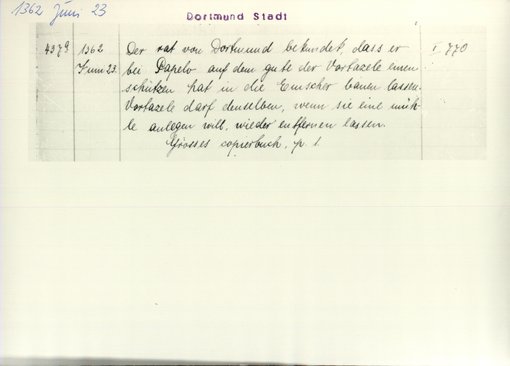 1362 Juni 23
Dortmund Stadt
437a 1362 Der rat von Dortmund bekundet, dass er I 770
Juni 23. bei Papelo auf dem gute der Vortazele einen
schützen hat in die Emscher bauen lassen.
Vortazele darf denselben, wenn sie eine müh-
le anlegen will, wieder entfernen lassen.
Grosses copierbuch, p. 1